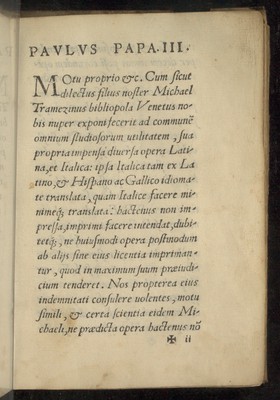 PAVLVS PAPA. III.
MOtu proprio &c. Cum sicut
dilectus filius noster Michael
Tramezinus bibliopola Venetus no-
bis nuper exponi fecerit ad communē
omnium studiosorum utilitatem, sua
propria impensa diuersa opera Lati-
na, et Italica: ipsa Italica tam ex La
tino, & Hispano ac Gallico idioma-
te translata, quam Italice facere mi-
nimeq; translata: hactenus non im-
pressa, imprimi facere intendat, dubi-
tetq;, ne huiusmodi opera postmodum
ab alijs sine eius licentia impriman-
tur, quod in maximum suum præiudi-
cium tenderet. Nos propterea eius
indemnitati consulere uolentes, motu
simili, & certa scientia eidem Mi-
chaeli, ne prædicta opera hactenus nō
✠ ii